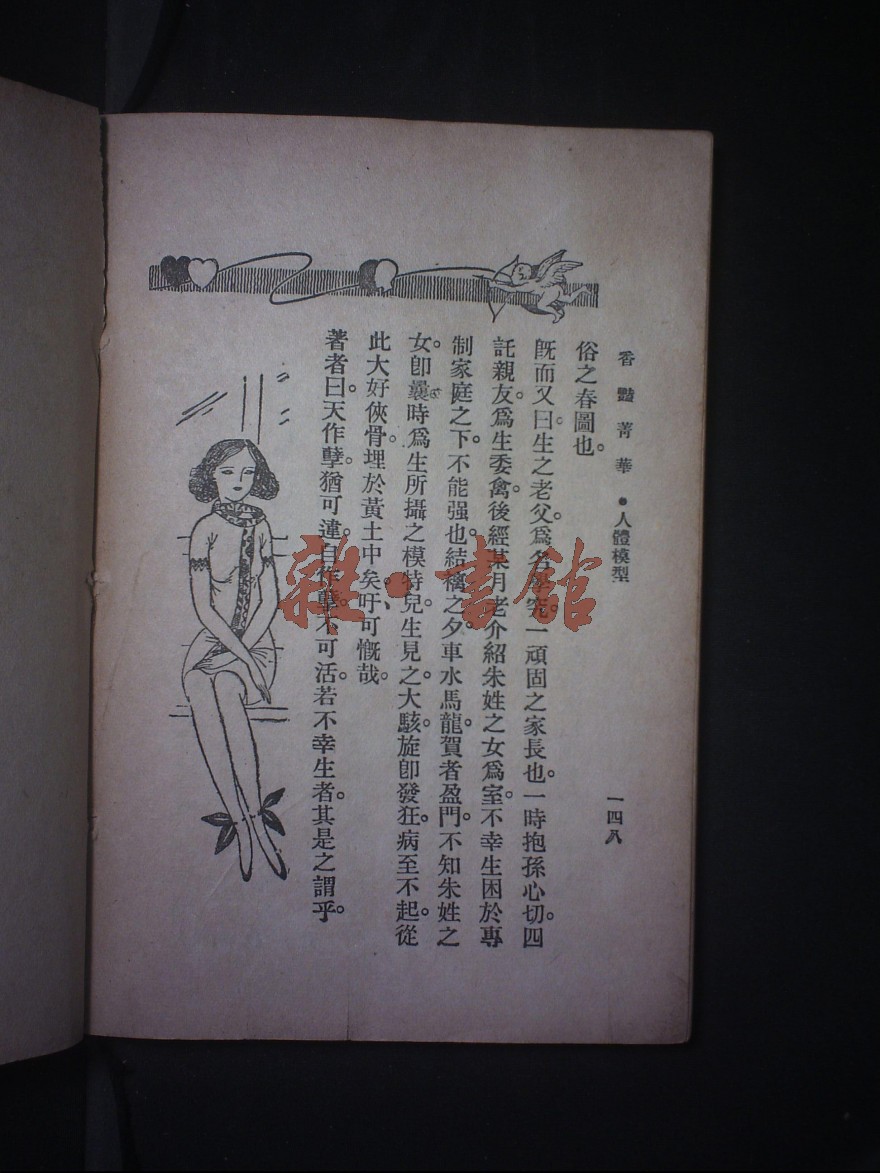 香豔菁華●人體模型
一四八
俗之春圖也。
旣而又曰。生之老父。爲名學究。一頑固之家長也。一時抱孫心切。四
託親友。爲生委禽。後經某月老介紹朱姓之女爲室。不幸生困於專
制家庭之下。不能强也。結褵之夕。車水馬龍。賀者盈門。不知朱姓之
女。卽曩時爲生所攝之模特兒。生見之。大駭。旋卽發狂。病至不起。從
此大好俠骨。埋於黃土中矣。吁可慨哉。
著者曰。天作孽。猶可違。自作孽。不可活。若不幸生者。其是之謂乎。
雜·書館